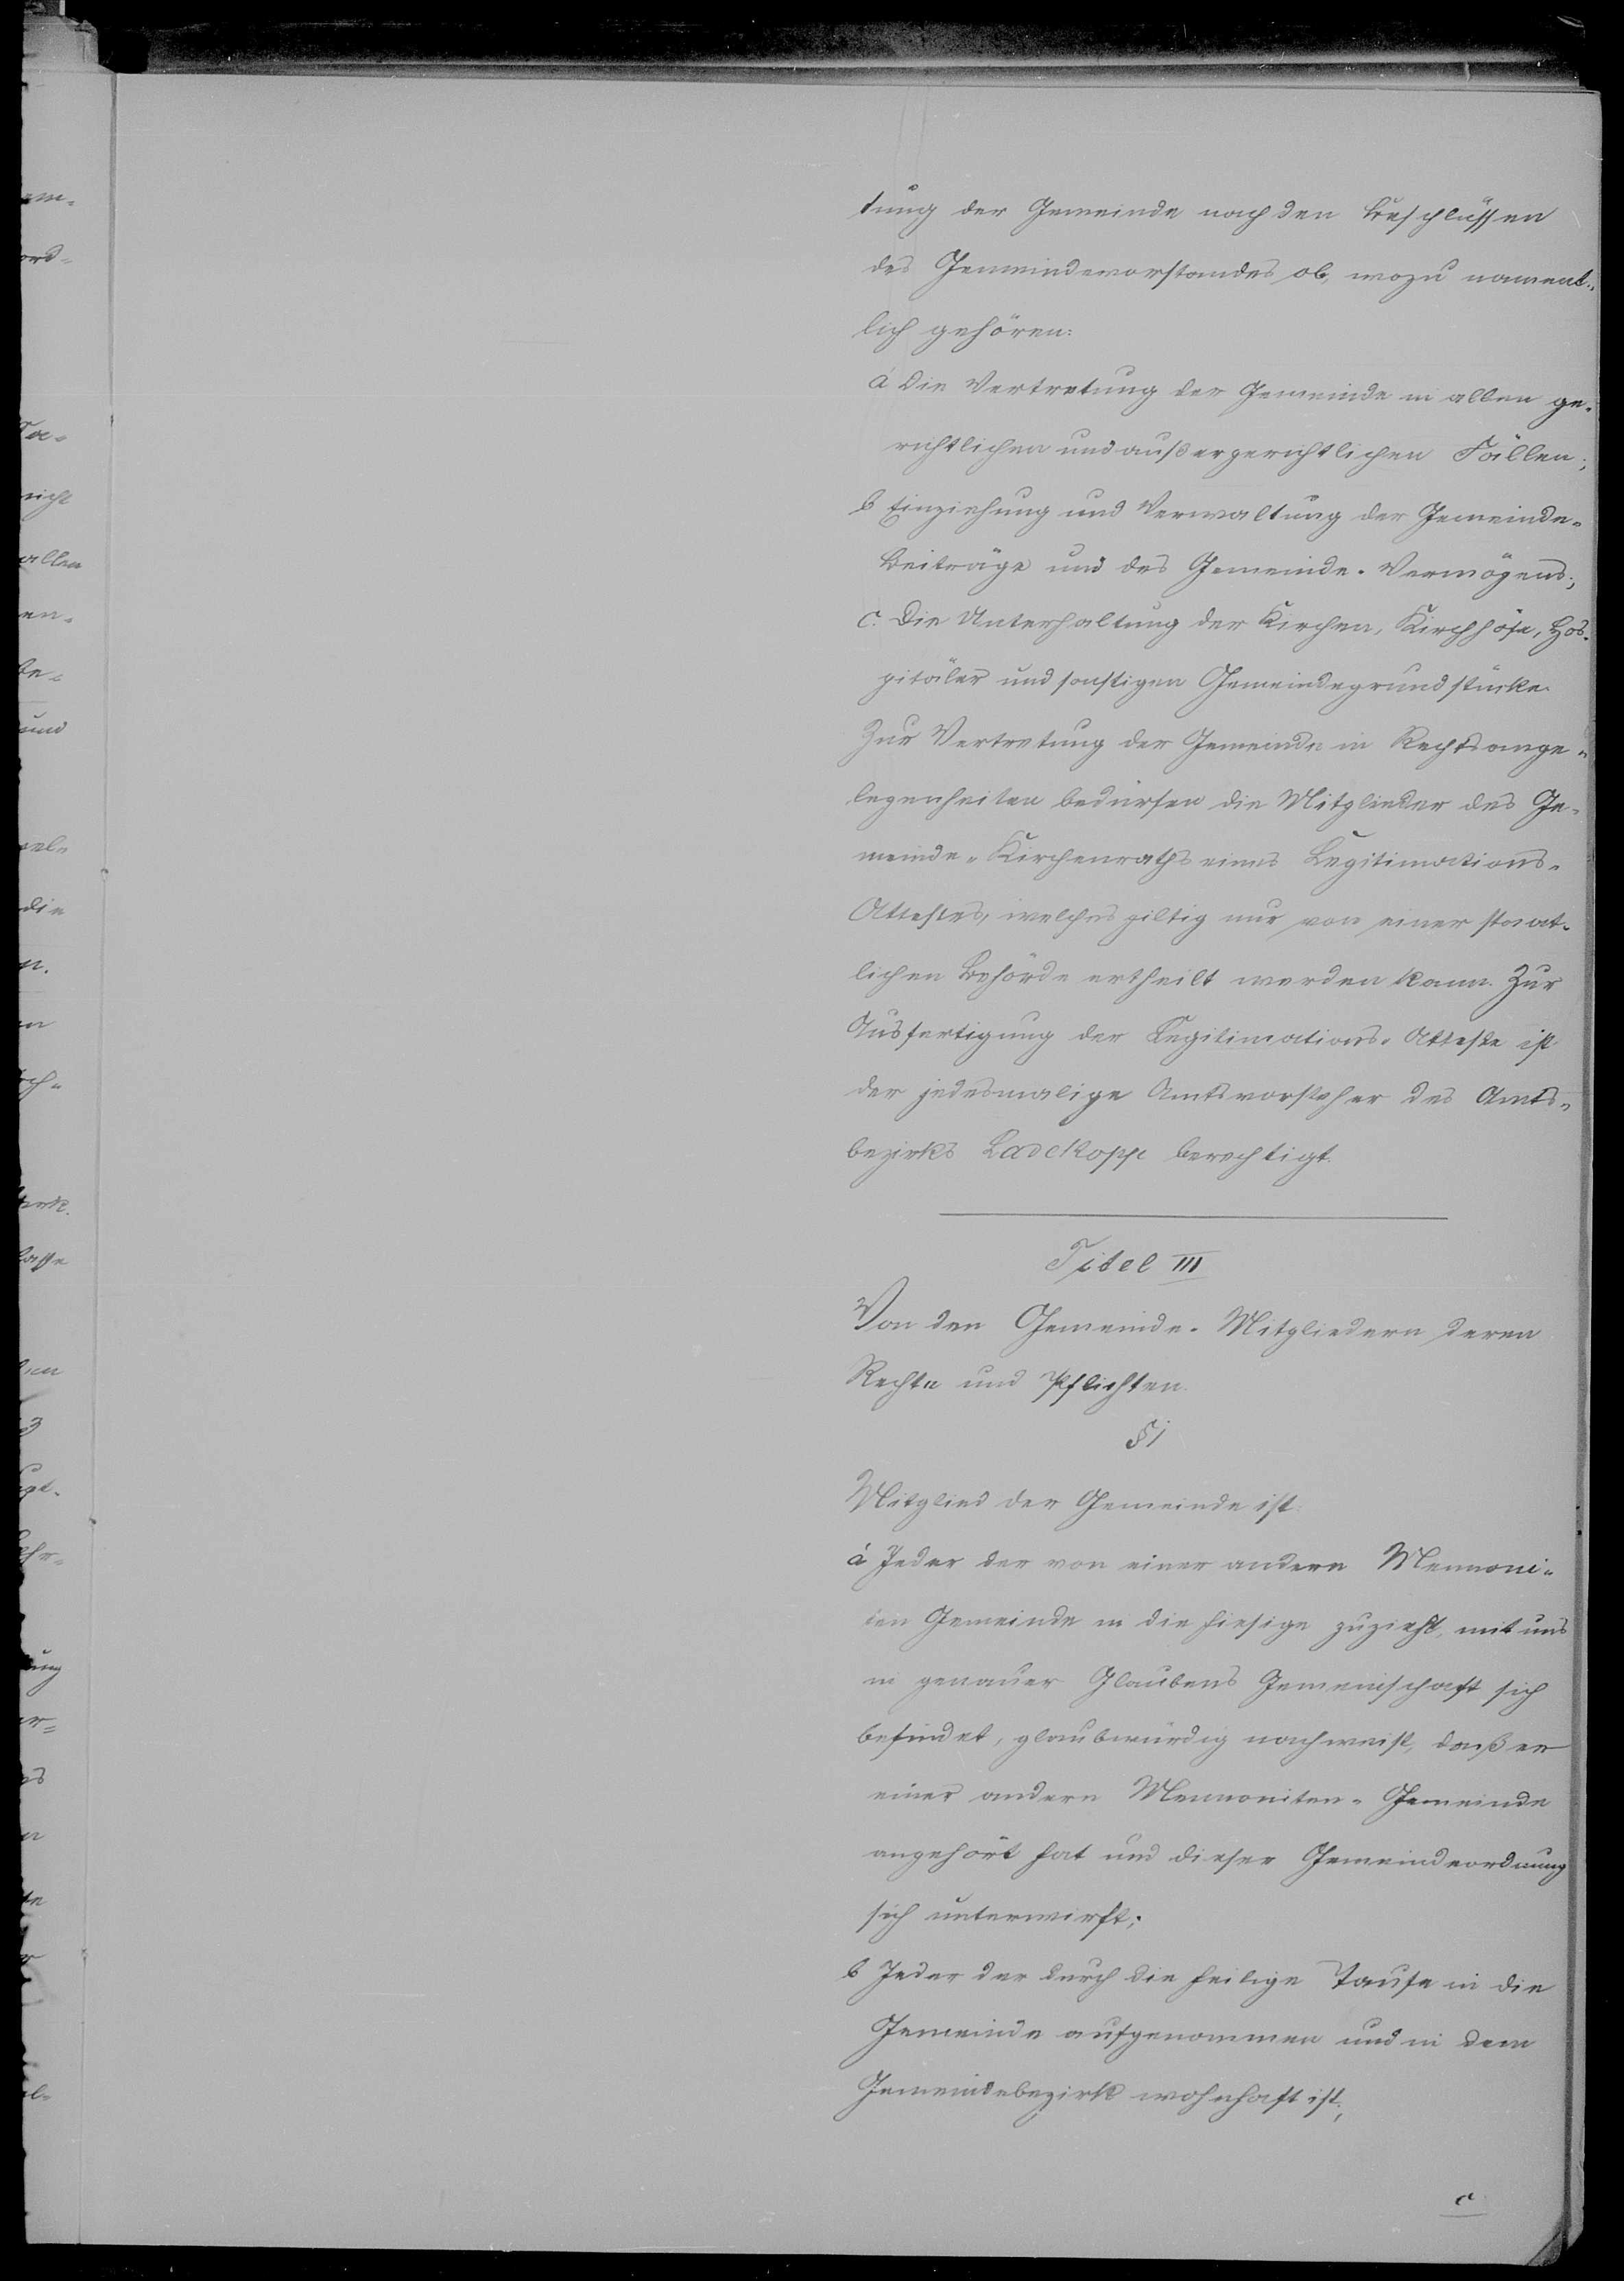 tung der Gemeinde nach den Beschlüssen
des Gemeindevorstandes ob, wozu nament-
lich gehören:
a Die Vertretung der Gemeinde in allen ge-
richtlichen und außergerichtlichen Fällen;
b Einziehung und Verwaltung der Gemeinde-
Beiträge und des Gemeinde-Vermögens;
c. Die Unterhaltung der Kirchen, Kirchhöfe, Hos-
pitäler und sonstigen Gemeindegrundstücke.
Zur Vertretung der Gemeinde in Rechtsange-
legenheiten bedürfen die Mitglieder des Ge-
meinde-Kirchenraths eines Legitimations-
Attestes, welches giltig nur von einer staat-
lichen Behörde ertheilt werden kann. Zur
Ausfertigung der Legitimations-Atteste ist
der jedesmalige Amtsvorsteher des Amts-
bezirks Ladekopp berechtigt.
Titel III
Von den Gemeinde-Mitgliedern deren
Rechte und Pflichten.
§ 1
Mitglied der Gemeinde ist:
a Jeder der von einer andern Mennoni-
ten Gemeinde in die hiesige zuzieht, mit uns
in genauer Glaubens Gemeinschaft sich
befindet, glaubwürdig nachweist, daß er
einer andern Mennoniten-Gemeinde
angehört hat und dieser Gemeindeordnung
sich unterwirft;
b Jeder der durch die heilige Taufe in die
Gemeinde aufgenommen und in dem
Gemeindebezirk wohnhaft ist;
c